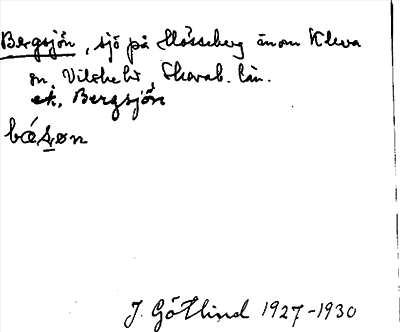 Bergsjön, sjö på Mösseberg inom Kleva
sn, Vilske hd, Skarab. län.
ek, Bergsjön
bǽsøn
J. Götlind 1927-1930